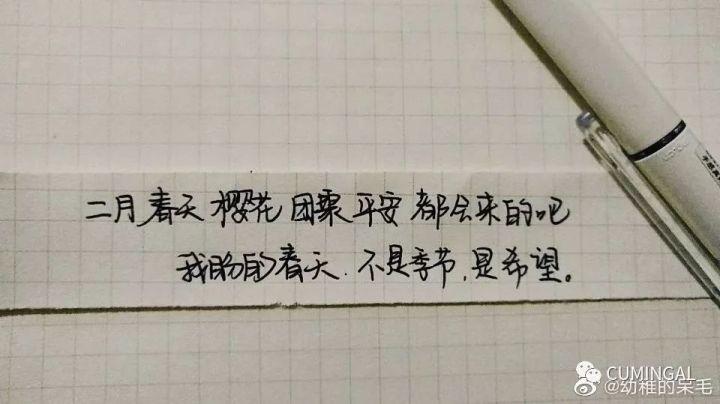 二月 春天 樱花 团栗 平安 都会来的吧
我盼的春天.不是季节,是希望。
CUMINGAI
@幼稚的呆毛